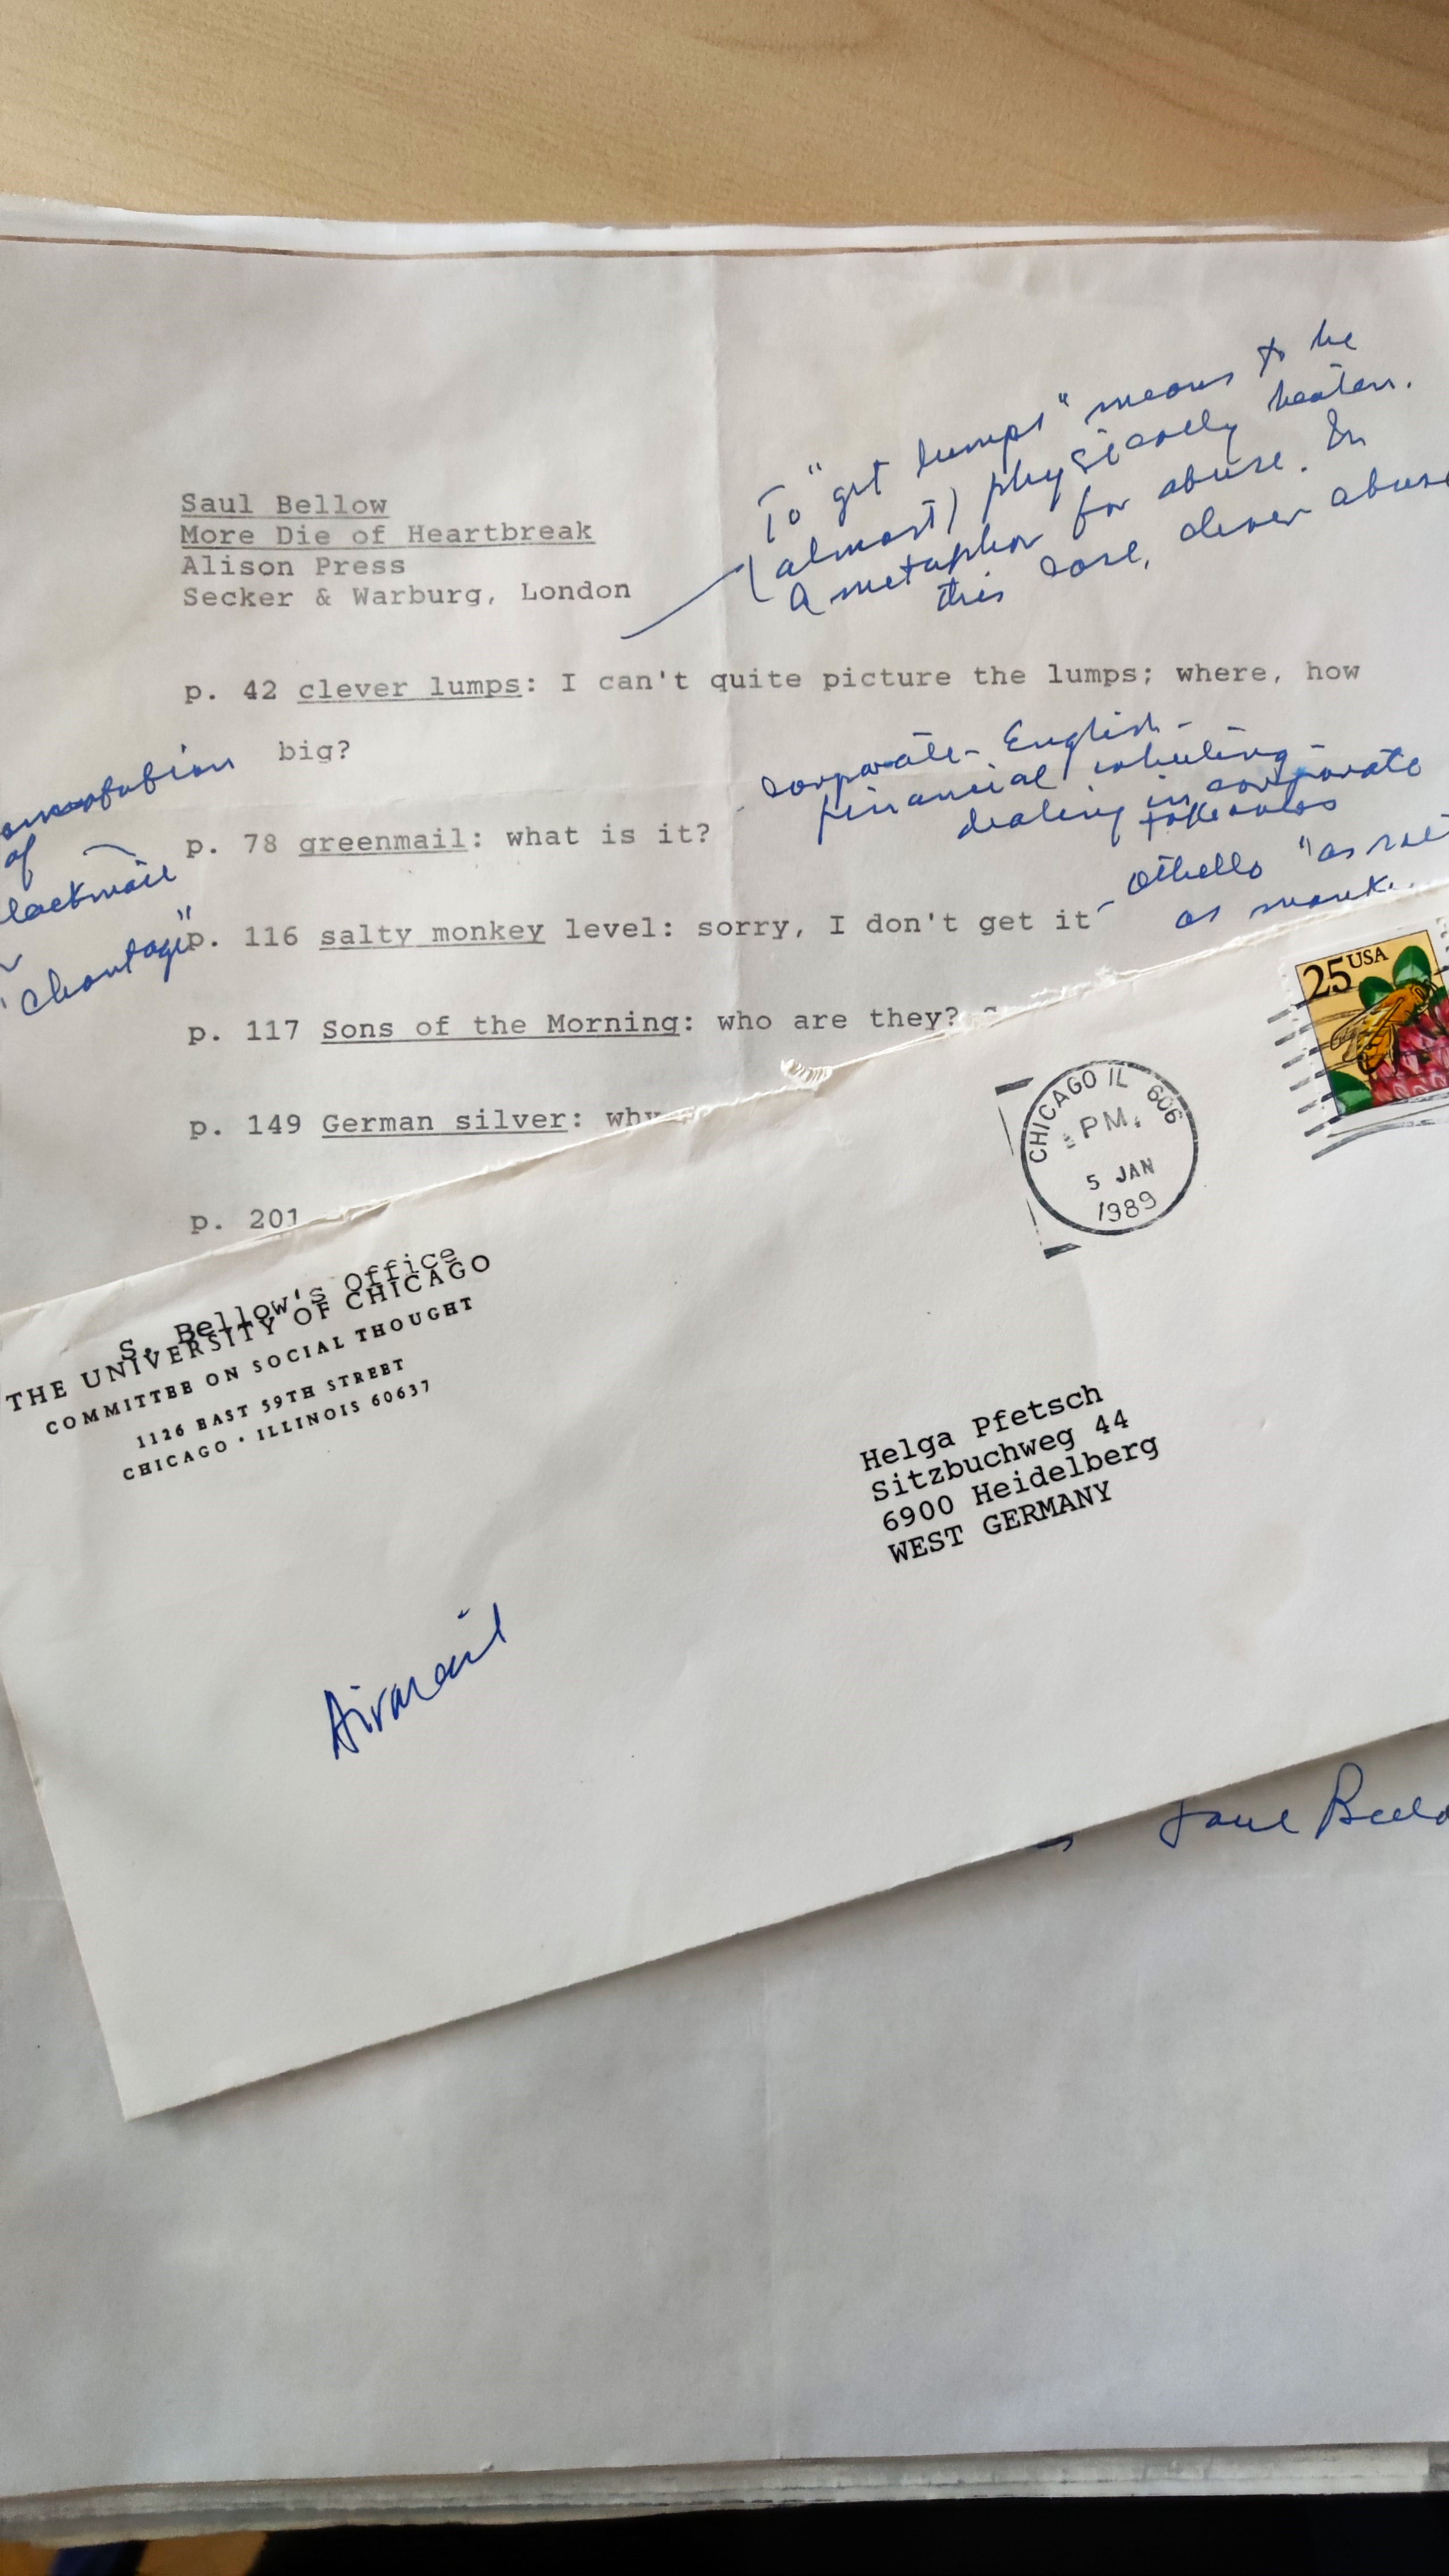 To "get lumps" means to be
(almost) physically beaten.
A metaphor for abuse. In
this case, clever abuse
Saul Bellow
More Die of Heartbreak
Alison Press
Secker & Warburg, London
p. 42 clever lumps: I can't quite picture the lumps; where, how
big?
corporate-English-
financial wheeling-
dealing in corporate
takeovers
of
p. 78 greenmail: what is it?
"chantage"
Othello "as
as
p. 116 salty monkey level: sorry, I don't get it
p. 117 Sons of the Morning: who are they?
p. 149 German silver: why
p. 201
25 USA
CHICAGO IL 606
PM
5 JAN
1989
S. Bellow's Office
THE UNIVERSITY OF CHICAGO
COMMITTEE ON SOCIAL THOUGHT
1126 EAST 59TH STREET
CHICAGO · ILLINOIS 60637
Helga Pfetsch
Sitzbuchweg 44
6900 Heidelberg
WEST GERMANY
Airmail
Saul Bello